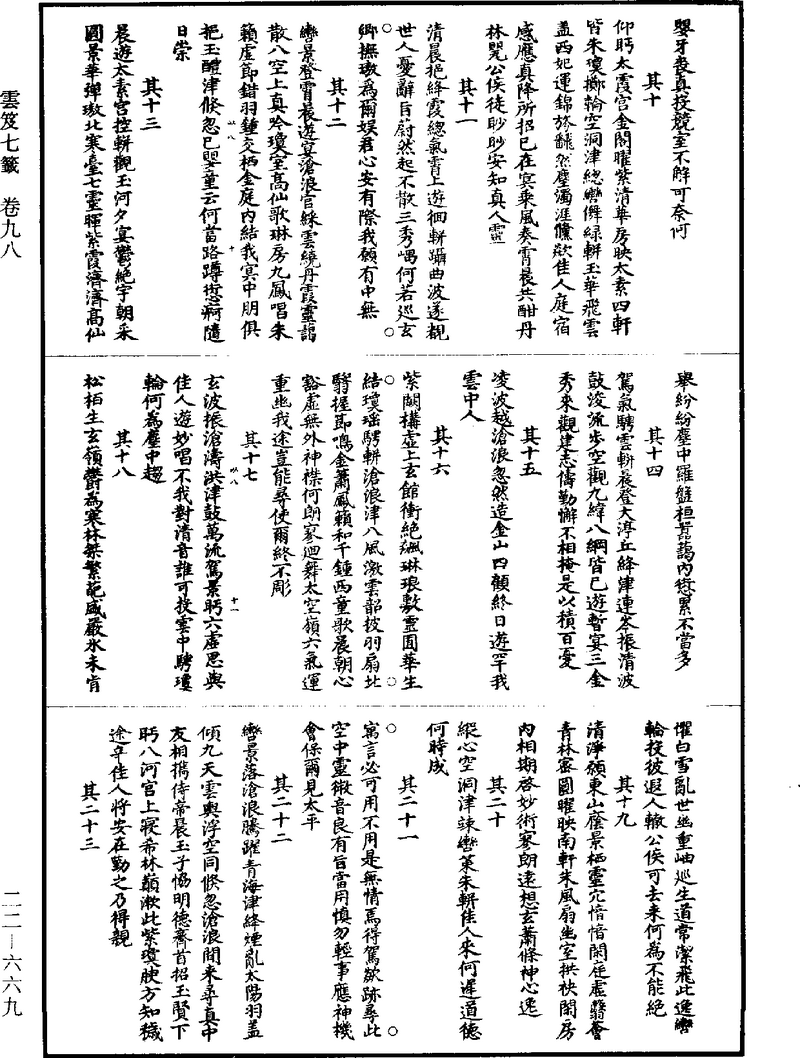 嬰牙喪真投競室不解可奈何
其十
仰眄太霞宮金閣曜紫清華房映太素四軒
皆朱瓊擲輪空洞津總轡儛綠軿玉華飛雲
蓋西妃運錦旍翻然塵濁涯儵欻佳人庭宿
感應真降所招已在冥乘風奏霄晨共酣丹
林罌公侯徒眇眇安知真人靈
其十一
清晨挹絳霞總氣霄上遊徊軿躡曲波遂覩
世人憂辭旨蔚然起不散三秀嵎何若巡玄
鄉撫璈為爾娛君心安有際我願有中無
其十二
轡景登霄晨遊宴滄浪宮綵雲繞丹霞靈藹
散八空上真吟瓊室高仙歌琳房九鳳唱朱
籟虛節錯羽鍾交栖金庭內結我冥中朋俱
挹玉醴津倏忽已嬰童云何當路蹲愆痾隨
日崇
其十三
晨遊太素宮控軿觀玉河夕宴鬱絕宇朝采
圓景華彈璈北寒臺七靈暉紫霞濟濟高仙
舉紛紛塵中羅盤桓囂藹內愆累不當多
其十四
駕氣騁雲軿晨登太渟丘絳津連岑振清波
鼓浚流步空觀九緯八綱皆已遊暫宴三金
秀來觀建志儔勤懈不相掩是以積百憂
其十五
淩波越滄浪忽然造金山四顧終日遊罕我
雲中人
其十六
紫闕構虛上玄館衝絕飆琳琅敷靈囿華生
結瓊瑤騁軿滄浪津八風激雲韶披羽扇北
翳握節鳴金簫鳳籟和千鍾西童歌晨朝心
豁虛無外神襟何朗寥迴舞太空嶺六氣運
重幽我途豈能尋使爾終不彫
其十七
玄波振滄濤洪津鼓萬流駕景眄六虛思與
佳人遊妙唱不我對清音誰可投雲中騁瓊
輪何為塵中趨
其十八
松栢生玄嶺鬱為寒林桀繁葩盛嚴氷未肯
懼白雪亂世幽重岫巡生道常潔飛此逸轡
輪投彼遐人轍公侯可去來何為不能絕
其十九
清淨願東山廕景栖靈穴愔愔閑庭虛翳薈
青林密圓曜映南軒朱風扇幽室拱袂閑房
內相期啓妙術寥朗遠想玄蕭條神心逸
其二十
縱心空洞津竦轡策朱軿佳人來何遲道德
何時成
其二十一
寓言必可用不用是無情焉得駕欻跡尋此
空中靈微音良有旨當用慎勿輕事應神機
會保爾見太平
其二十二
轡景落滄浪騰躍青海津絳煙亂太陽羽蓋
傾九天雲輿浮空同倏忽滄浪間來尋真中
友相攜侍帝晨玉子協明德齊首招玉賢下
眄八河宮上寢希林巔漱此紫瓊腴方知穢
途辛佳人將安在勤之乃得親
其二十三
雲笈七籤 卷九八
二二—六六九